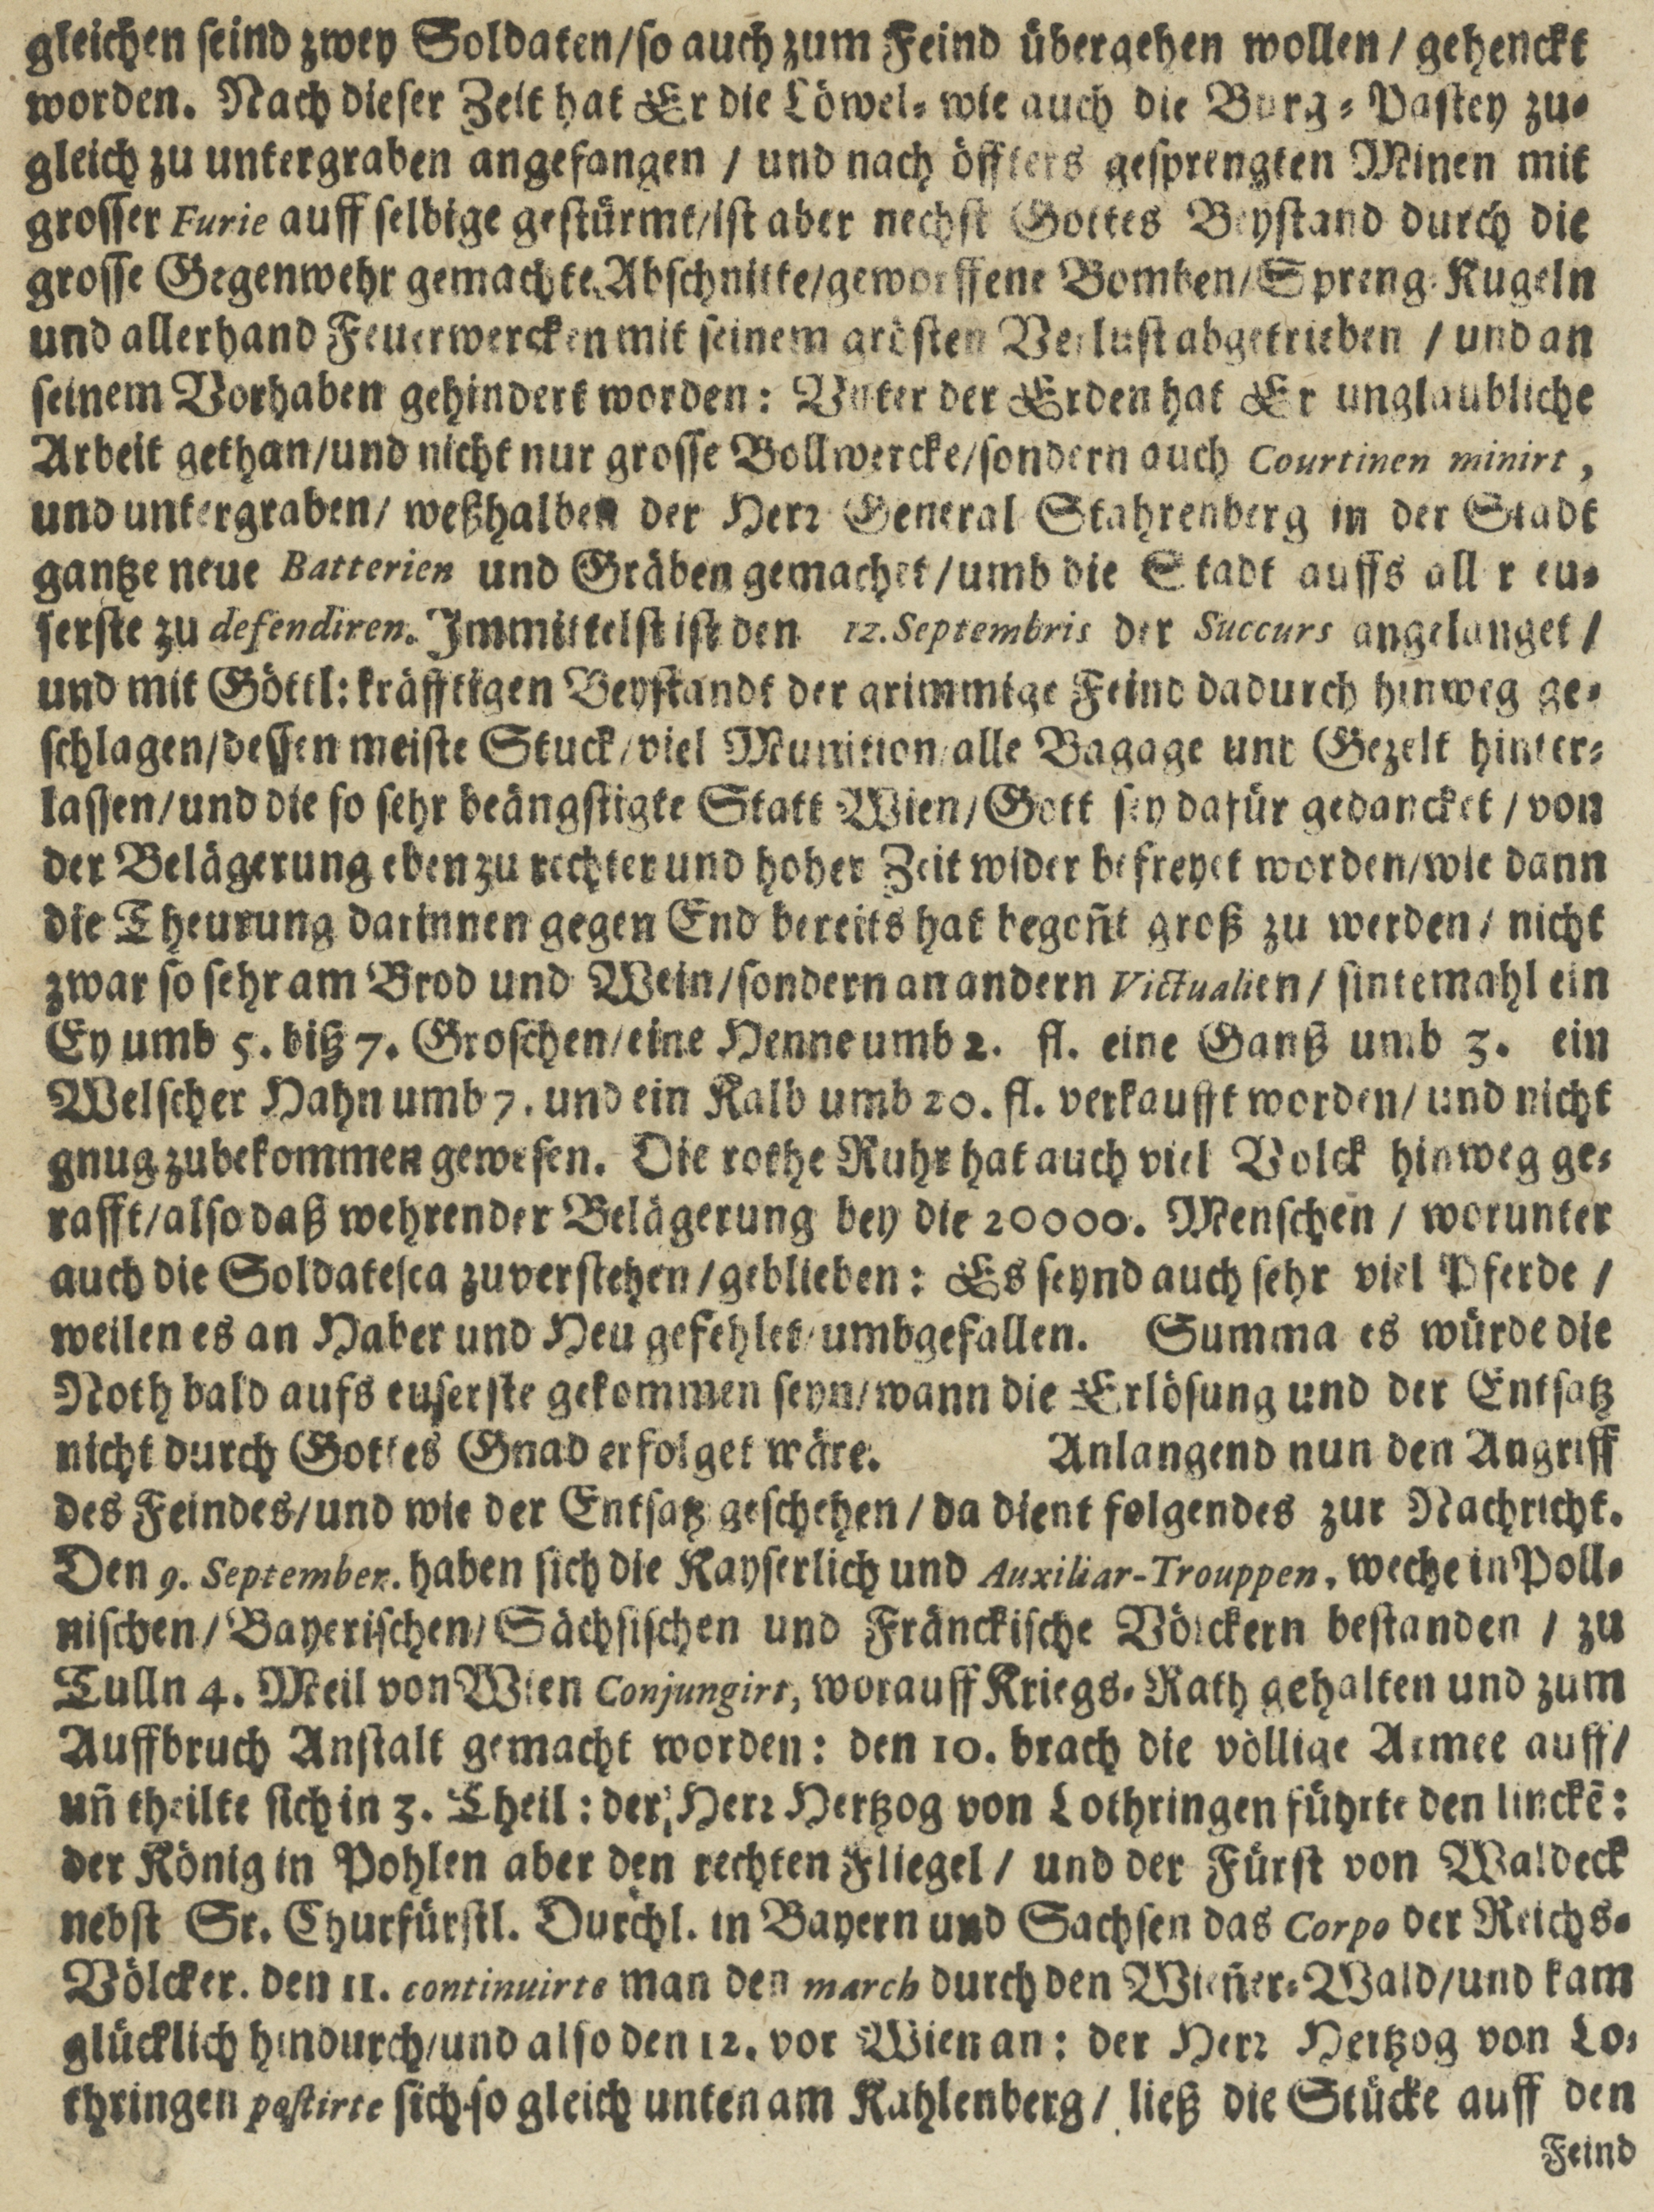 gleichen seind zwey Soldaten/so auch zum Feind übergehen wollen / gehenckt
worden. Nach dieser Zeit hat Er die Löwel- wie auch die Burg-Pastey zu-
gleich zu untergraben angefangen / und nach öffters gesprengten Minen mit
grosser Furie auff selbige gestürmt/ist aber nechst Gottes Beystand durch die
grosse Gegenwehr gemachte Abschnitte/geworffene Bomben/Spreng-Kugeln
und allerhand Feuerwercken mit seinem grösten Verlust abgetrieben / und an
seinem Vorhaben gehindert worden: Unter der Erden hat Er unglaubliche
Arbeit gethan/und nicht nur grosse Bollwercke/sondern auch Courtinen minirt,
und untergraben/ weßhalben der Herr General Stahrenberg in der Stadt
gantze neue Batterien und Gräben gemachet/umb die Stadt auffs aller eu-
serste zu defendiren. Immittelst ist den 12. Septembris der Succurs angelanget/
und mit Göttl: kräfftigen Beystandt der grimmige Feind dadurch hinweg ge-
schlagen/dessen meiste Stuck/viel Munition/alle Bagage und Gezelt hinter-
lassen/und die so sehr beängstigte Statt Wien/Gott sey dafür gedancket / von
der Belägerung eben zu rechter und hoher Zeit wider befreyet worden/wie dann
die Theurung darinnen gegen End bereits hat begoñt groß zu werden/ nicht
zwar so sehr am Brod und Wein/sondern an andern Victualien/ sintemahl ein
Ey umb 5. biß 7. Groschen/eine Henne umb 2. fl. eine Ganß umb 3. ein
Welscher Hahn umb 7. und ein Kalb umb 20. fl. verkaufft worden/ und nicht
gnug zubekommen gewesen. Die rothe Ruhr hat auch viel Volck hinweg ge-
rafft/also daß wehrender Belägerung bey die 20000. Menschen / worunter
auch die Soldatesca zuverstehen/geblieben: Es seynd auch sehr viel Pferde /
weilen es an Haber und Heu gefehlet/umbgefallen. Summa es würde die
Noth bald aufs euserste gekommen seyn/wann die Erlösung und der Entsatz
nicht durch Gottes Gnad erfolget wäre. Anlangend nun den Angriff
des Feindes/und wie der Entsatz geschehen/da dient folgendes zur Nachricht.
Den 9. September. haben sich die Kayserlich und Auxiliar-Trouppen, weche in Poll-
nischen/Bayerischen/Sächsischen und Fränckische Völckern bestanden / zu
Tulln 4. Meil von Wien Conjungirt, worauff Kriegs-Rath gehalten und zum
Auffbruch Anstalt gemacht worden: den 10. brach die völlige Armee auff/
uñ theilte sich in 3. Theil: der Herr Hertzog von Lothringen führte den linckē:
der König in Pohlen aber den rechten Fliegel/ und der Fürst von Waldeck
nebst Sr. Churfürstl. Durchl. in Bayern und Sachsen das Corpo der Reichs-
Völcker. den 11. continuirte man den march durch den Wieñer-Wald/und kam
glücklich hindurch/und also den 12. vor Wien an: der Herr Hertzog von Lo-
thringen postirte sich so gleich unten am Kahlenberg/ ließ die Stücke auff den
Feind